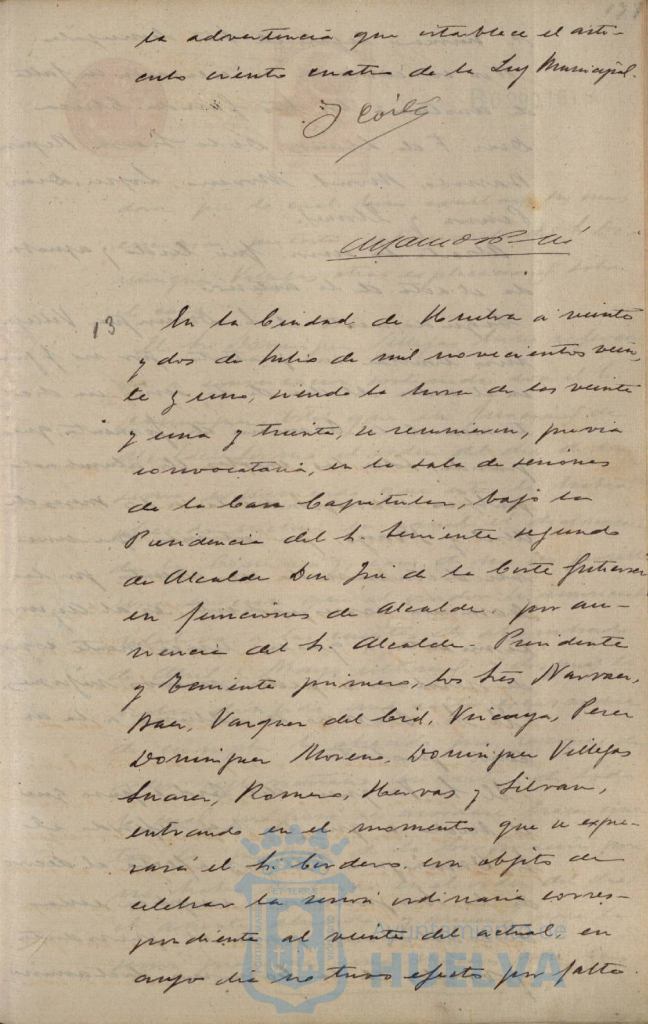 la advertencia que establece el artí-
culo ciento cuatro de la Ley Municipal.
J Corte
13
En la Ciudad de Huelva a veinte
y dos de Julio de mil novecientos vein-
te y uno, siendo la hora de las veinte
y una y treinta, se reunieron, previa
convocatoria, en la sala de sesiones
de la Casa Capitular, bajo la
Presidencia del Sr. Teniente segundo
de Alcalde Don José de la Corte Gutierrez
en funciones de Alcalde por au-
sencia del Sr. Alcalde-Presidente
y Teniente primero, los Sres Narvaez,
Baez, Vazquez del Cid, Vizcaya, Perez
Dominguez Moreno, Dominguez Villegas
Suarez, Romero, Hervas y Silvan,
entrando en el momento que se expre-
sará el Sr. Cordero con objeto de
celebrar la sesión ordinaria corres-
pondiente al veinte del actual, en
cuyo dia no tuvo efecto por falta
Ayuntamiento de
HUELVA